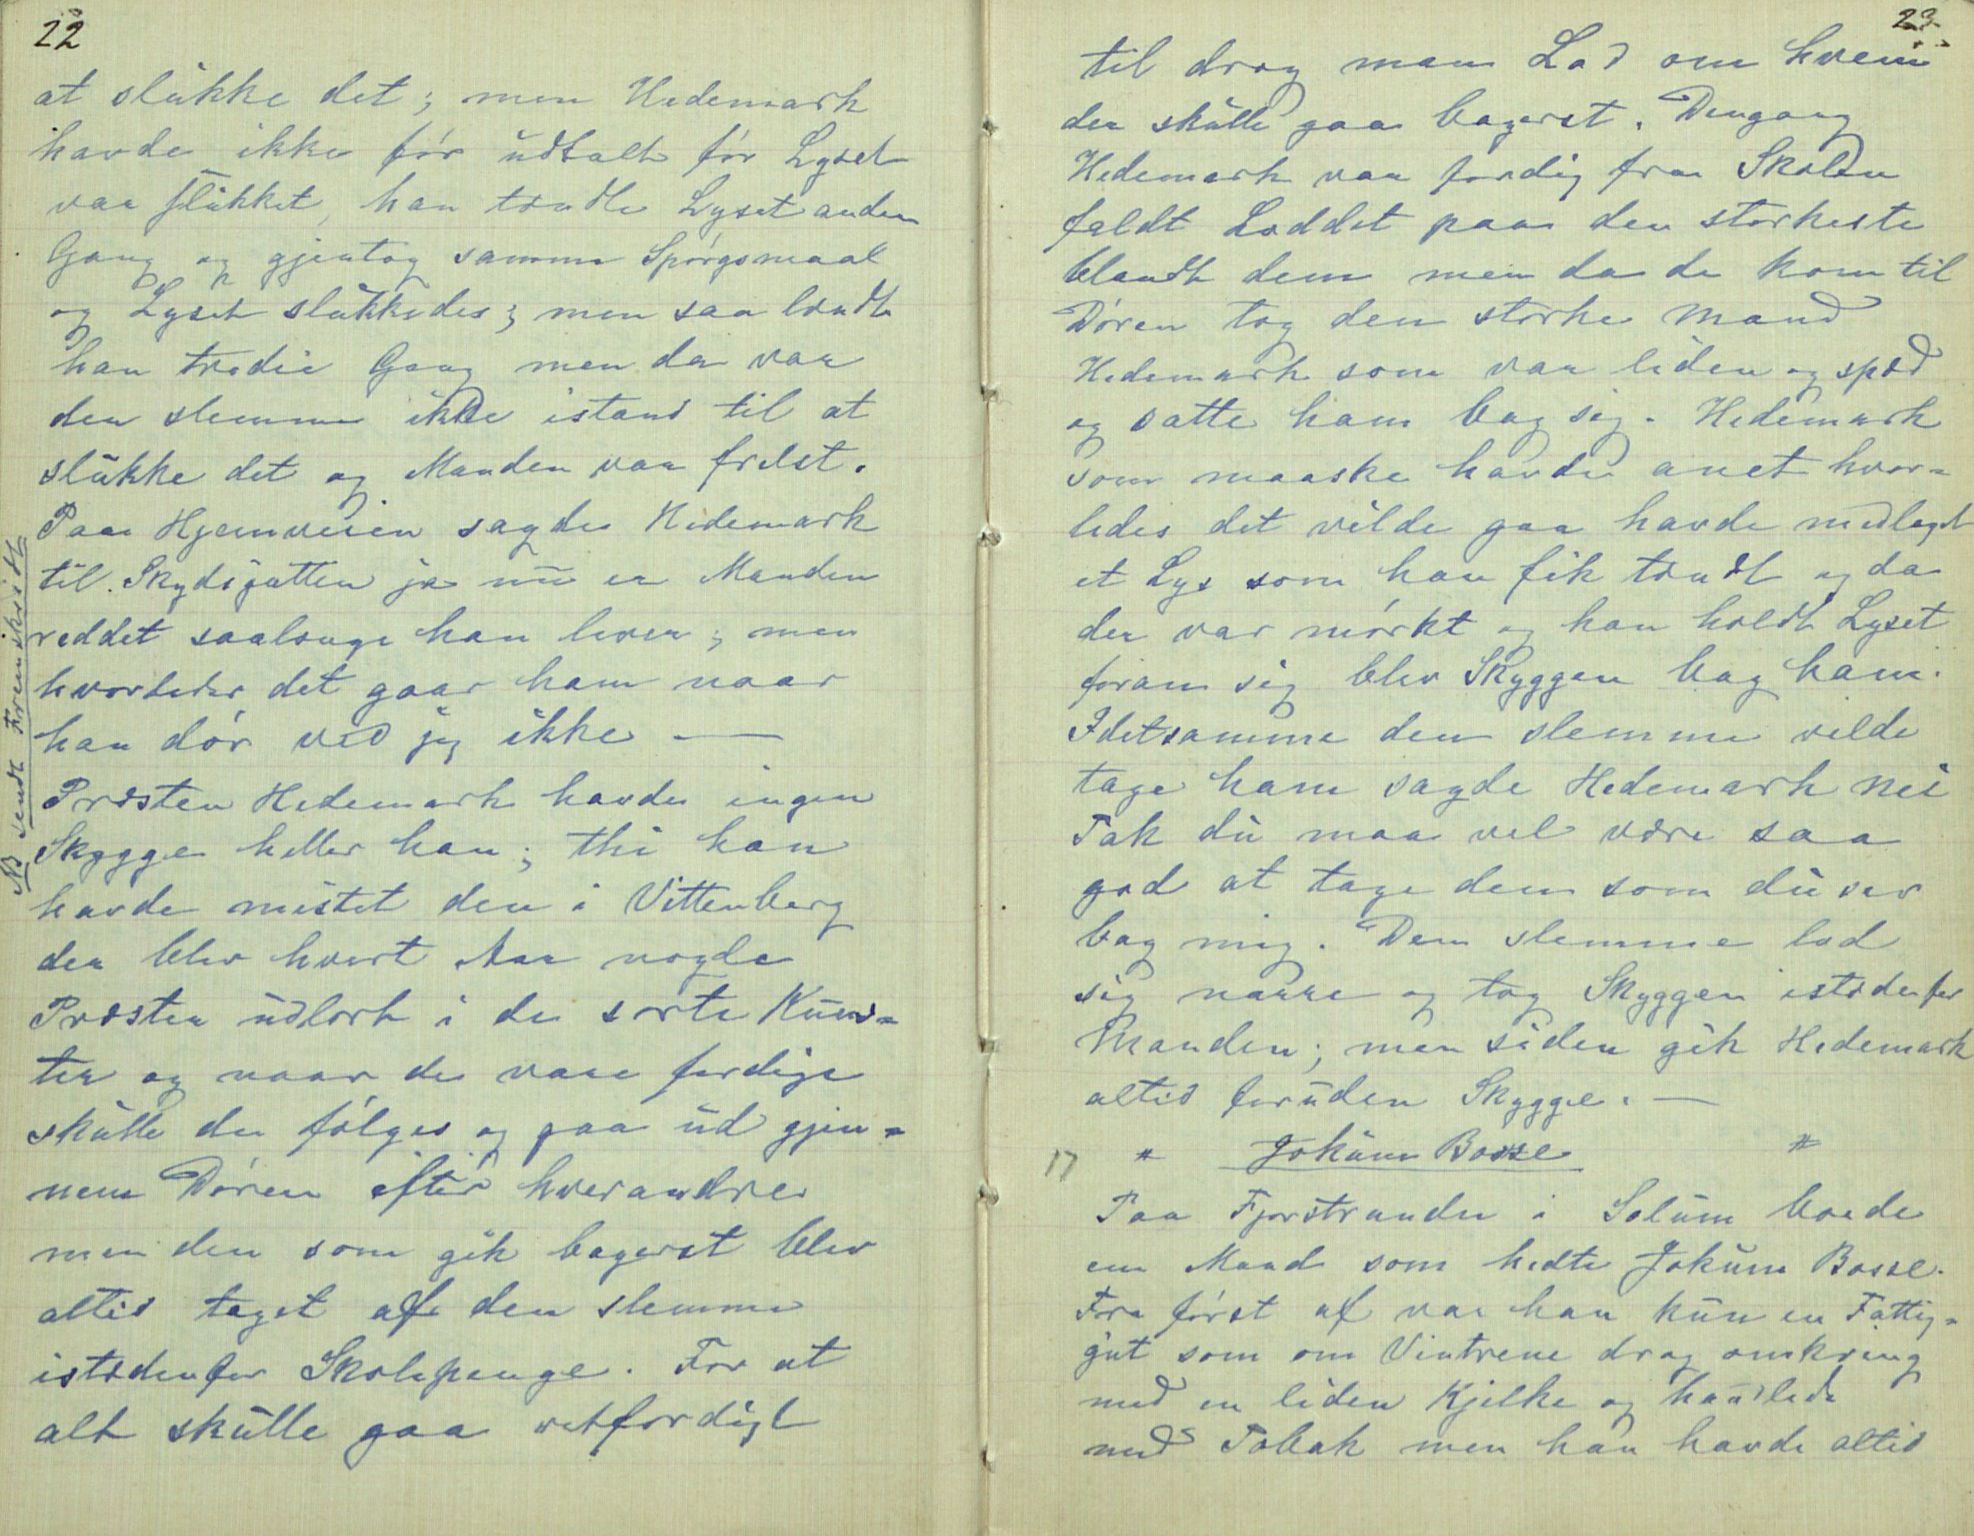 22
at slukke det; men Hedemark
havde ikke før udtalt før Lyset
var slukket, han tændte Lyset anden
Gang og gjentog samme Spørgsmaal
og Lyset slukkedes; men saa tændte
han tredie Gang men da var
den slemme ikke istand til at
slukke det og Manden var frelst.
Paa Hjemveien sagde Hedemark
til Skydsgutten ja nu er Manden
reddet saalænge han lever; men
hvorledes det gaar ham naar
han dør ved jeg ikke —
Præsten Hedemark havde ingen
Skygge heller han; thi han
havde mistet den i Vittenberg
der blev hvert Aar nogle
Præster udlært i de sorte Kuns-
ter og naar de vare færdige
skulle de følges og gaa ud gjen-
nem Døren efter hverandre
men den som gik bagerst blev
altid taget af den slemme
istedenfor Skolepenge. For at
alt skulle gaa retfærdigt
NB sendt Fremskridt
23.
til drog man Lod om hvem
der skulle gaa bagerst. Dengang
Hedemark var færdig fra Skolen
faldt Loddet paa den stærkeste
blandt dem men da de kom til
Døren tog den stærke Mand
Hedemark som var liden og spæd
og satte ham bag sig. Hedemark
som maaske havde anet hvor-
ledes det vilde gaa havde medtaget
et Lys som han fik tændt og da
der var mørkt og han holdt Lyset
foran sig blev Skyggen bag ham.
Idetsamme den slemme vilde
tage ham sagde Hedemark nei
Tak du maa vel være saa
god at tage den som du ser
bag mig. Den slemme lod
sig narre og tog Skyggen istedenfor
Manden; men siden gik Hedemark
altid foruden Skygge. —
17 " Jokum Bosse "
Paa Fjorstranden i Solum boede
en Mand som hedte Jokum Bosse.
Fra først af var han kun en Fattig-
gut som om Vintrene drog omkring
med en liden Kjelke og handlede
med Tobak men han havde altid